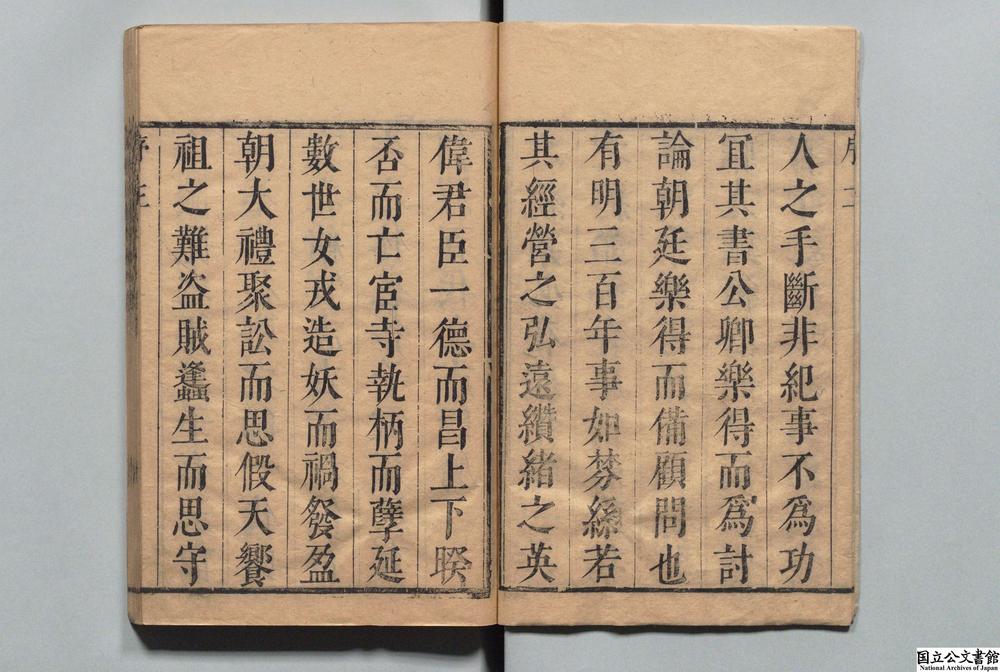 人之手斷非紀事不為功
宜其書公卿樂得而為討
論朝廷樂得而備顧問也
有明三百年事如棼絲若
其經營之弘遠纘緒之英
偉君臣一德而昌上下睽
否而亡宦寺執柄而孽延
數世女戎造妖而禍發盈
朝大禮聚訟而思假天饗
祖之難盜賊蠭生而思守
国立公文書館
National Archives of Japan